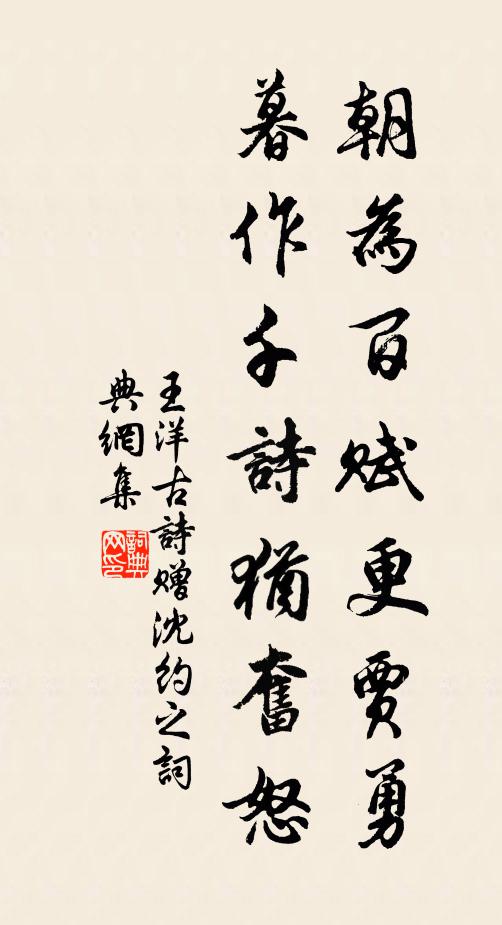 朝為百賦更賈勇
暮作千詩猶奮怒
王洋古詩贈沈約之詞
典網集
詞典网印